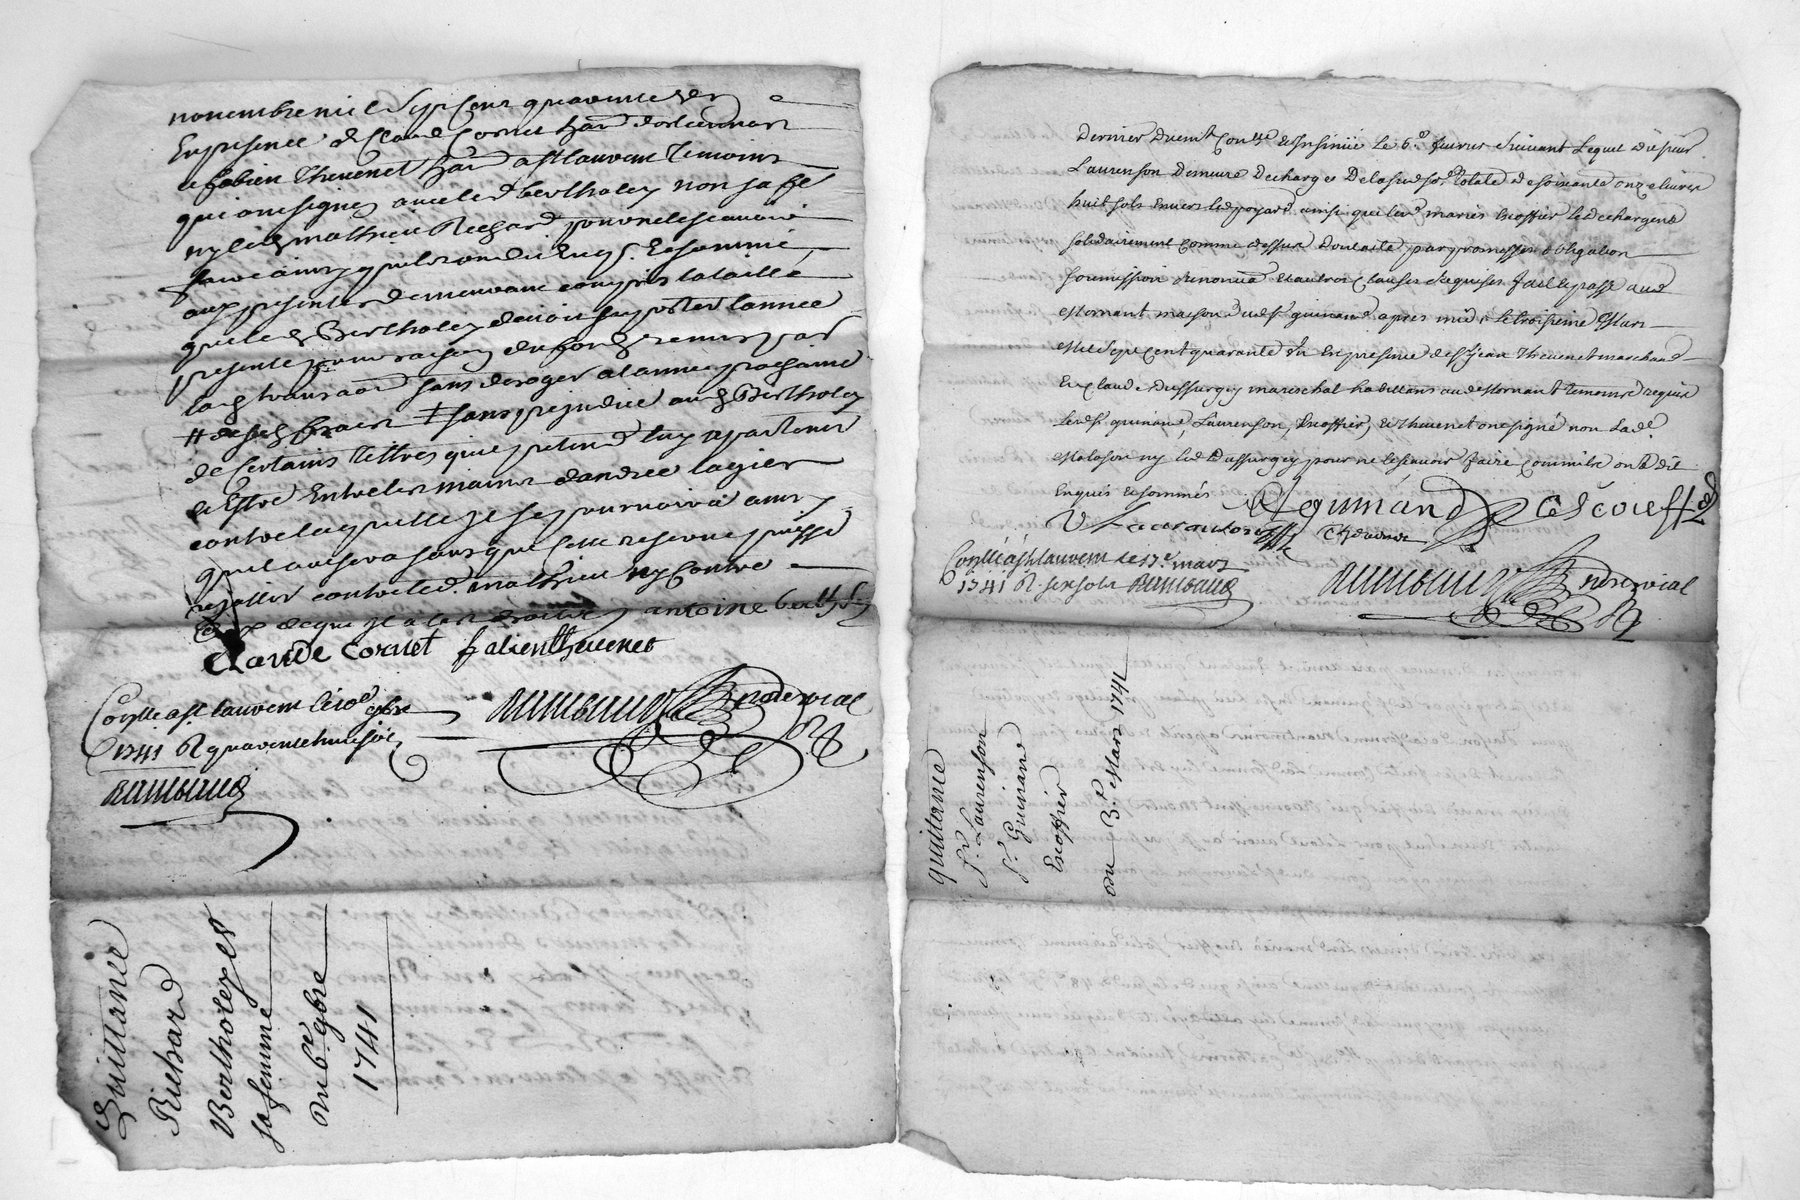 novembre mil sept cent quarante un
En presence de Claude Cornet
et fabien Thevenet hant a st laurent temoins
qui ont signé avec led bertholey non sa fe
ny led mathieu Richard pour ne le scavoir
faire ainsy qu'ils ont dit Enquis Et sommé
aux presentes demeurant compris la taille
que led Bertholey devoit supporter lannée
presente pour raison du fonds remis par
lad transaon sans deroger a lannée prochaine
sans prejudice aud Bertholey
de certains tittres qui pretend luy apartenir
et Estre Entre les mains dandree lagier
contre laquelle il se pourvoira ainsy
quil avisera sans que cette reserve puisse
rejallir contre led. mathieu ny contre
antoine berthol
Claude Cornet fabien thevenet
Conlle a st laurent le 10e 9bre
1741 R quarante huit sols
Quittance
Richard
Bertholey et
sa femme
du 6e 9bre
1741
Dernier duemt Con lle et Insinüé le 6e fevrier suivant Lequel dit sieur
Laurenson Demeure Decharges De la susd so.e totale de soixante onze livres
huit sols Envers led poyard ainsi que led mariés Escoffier led chargent
solidairement comme dessus Dont acte par promesses obligation
soumission Renonon Et autres Clauses Requises fait Et passé aud
Mornant maison dud sr guinand apres midi le troisieme Mars
Mil sept cent quarante Un En presence de sr jean Thevenet marchand
Et Claude Dussurgey mareschal habittans aud Mornant temoins requis
Lesd sr guinand, Laurenson, Escoffier, et Thevenet ont signé non lad.
ny led Dussurgey pour ne le scavoir faire comme ils ont dit
Enquis et sommés guinand Escoffier
Laurenson Thevenet
Conllé a st laurent le 17e mars
1741 R. six sols
quittance
Sr. Laurenson
Sr. Guinand
Escoffier
Du 3e Mars 1741